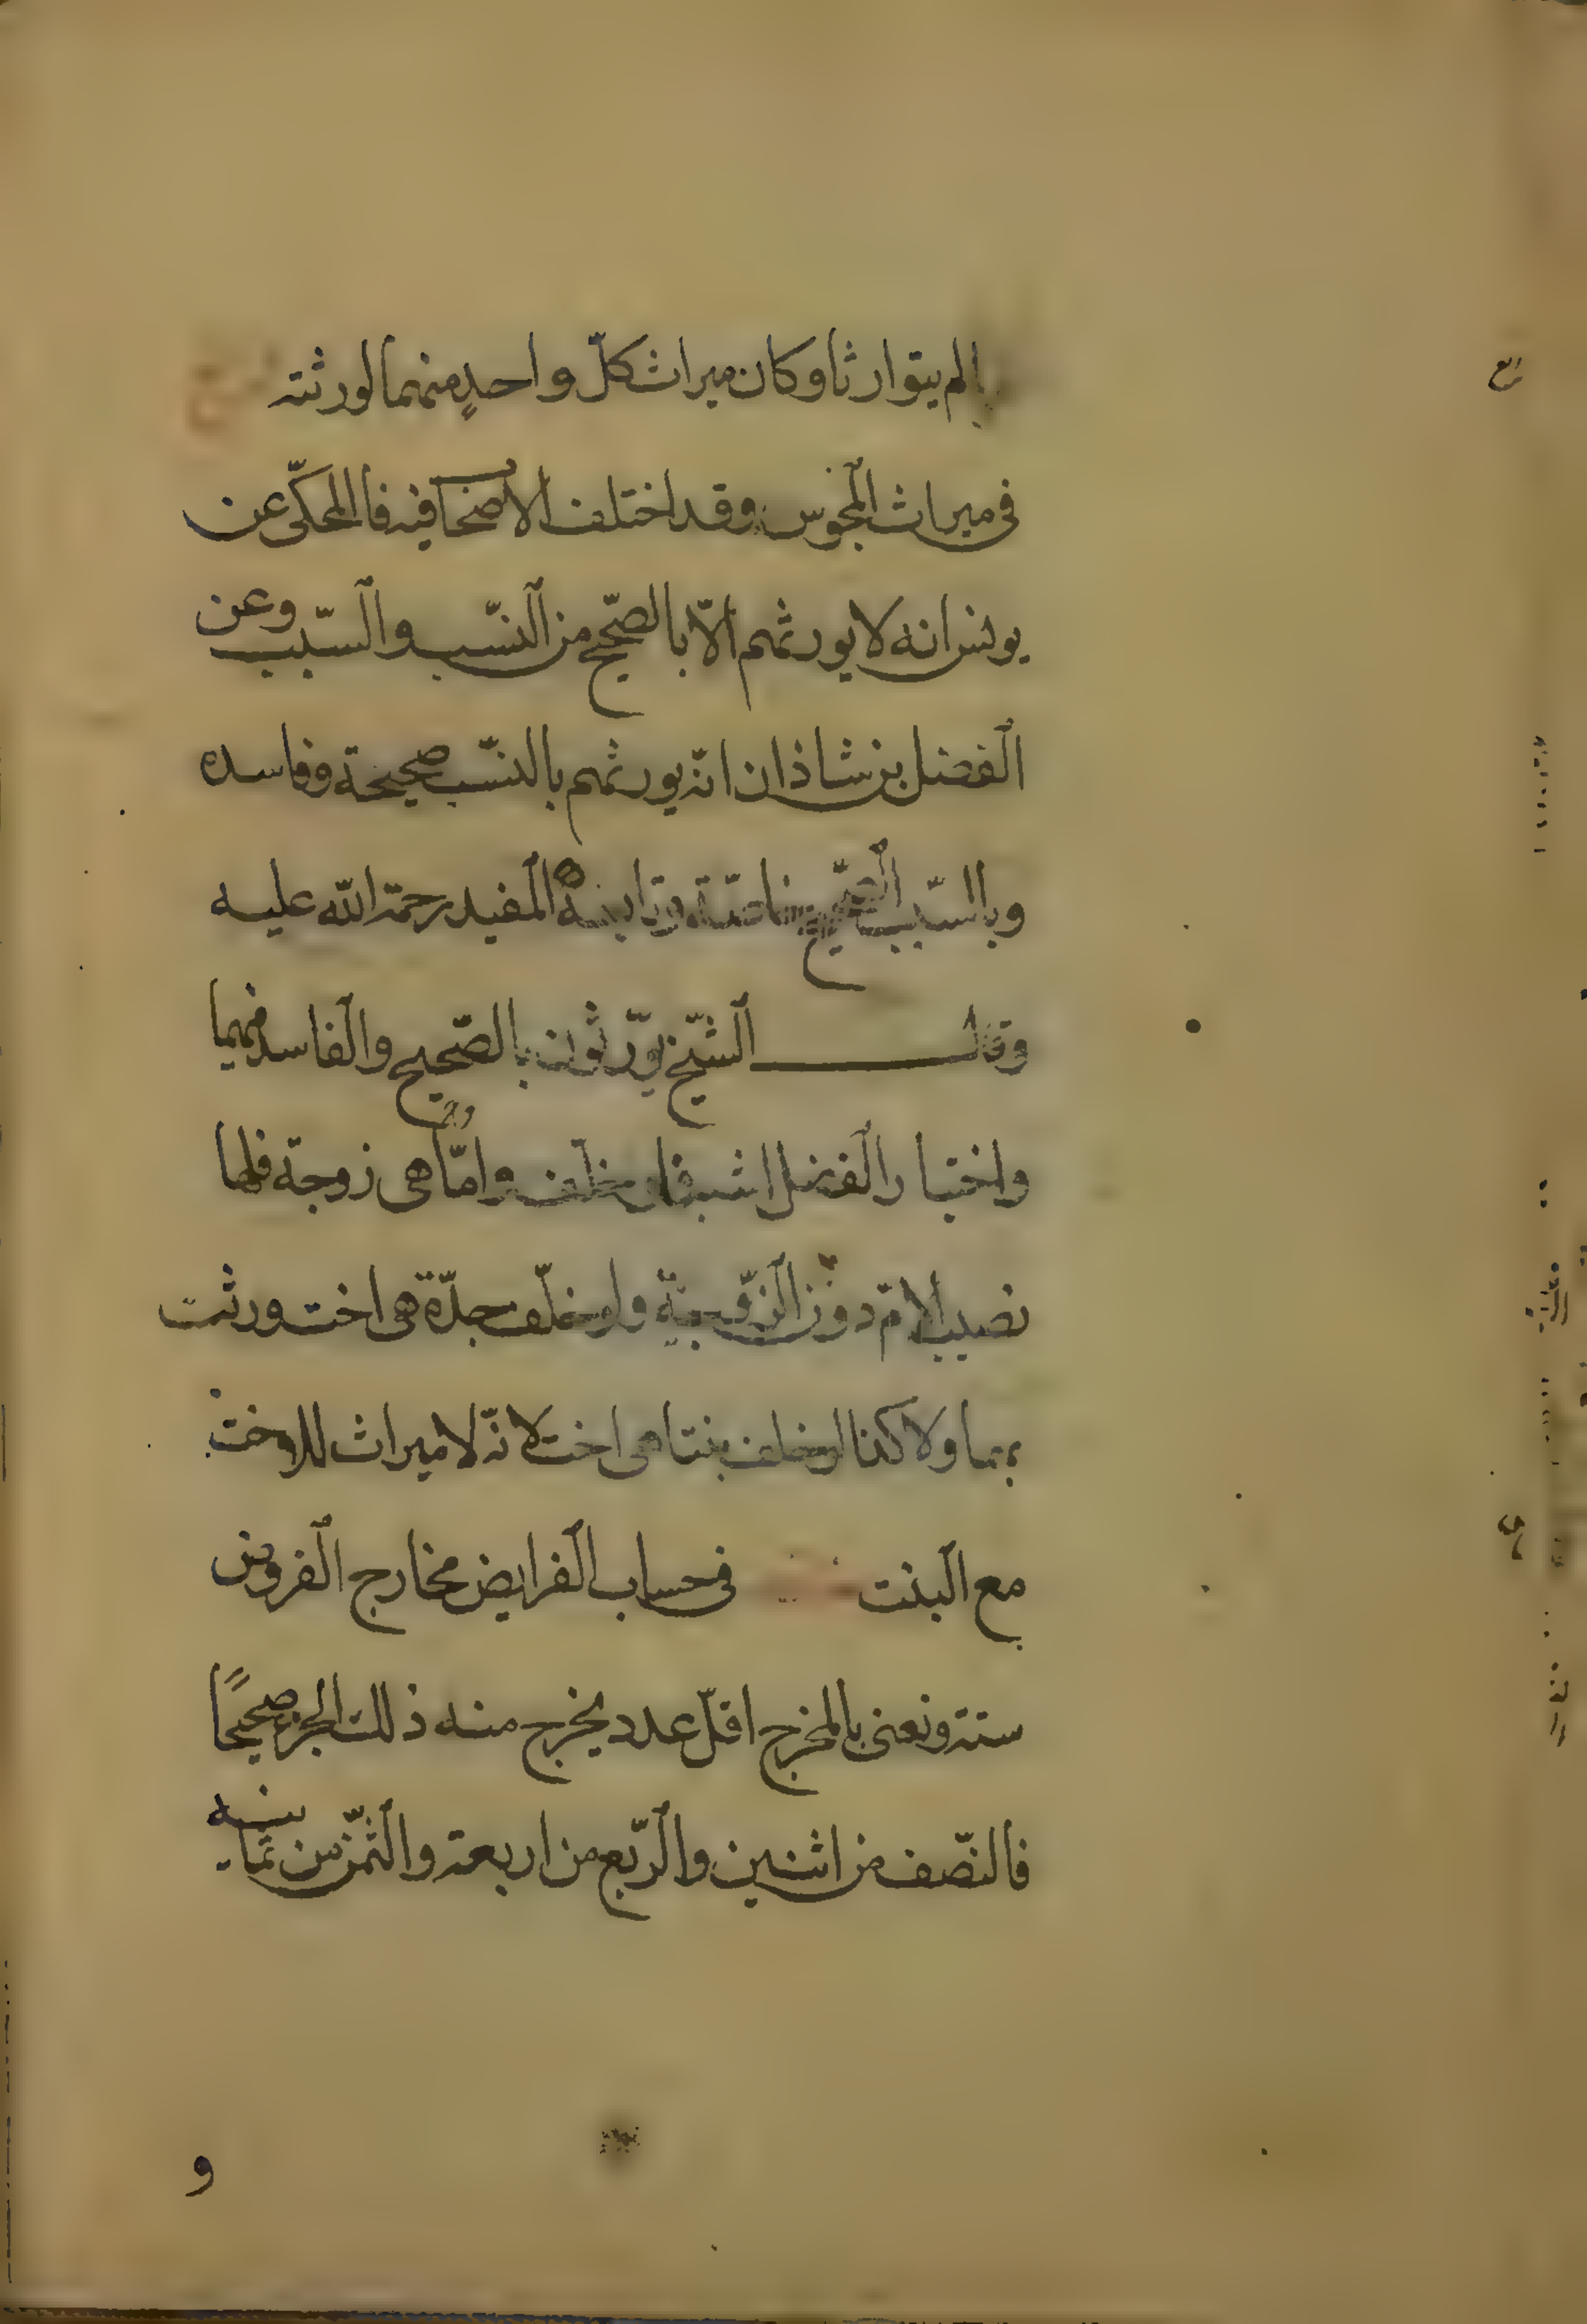 لم يتوارثا وكان ميراث كلّ واحدٍ منهما لورثته
فى ميراث المجوس وقد اختلف الاصحاب فيه فالمحكّى عن
يونس انه لا يورثهم الّا بالصّحيح من النّسب والسّبب وعن
الفضل بن شاذان انّه يورثهم بالنّسب صحيحة وفاسده
وبالسّبب الصّحيح خاصّة وتابعه المفيد رحمة الله عليه
وقال الشّيخ يورّثون بالصّحيح والفاسد فيهما
واختيار الفضل اشبه فلو خلف امّا هى زوجة فلها
نصيب الامّ دون الزّوجيّة ولو خلّف جدّة هى اخت ورثت
بهما ولا كذا لو خلف بنتا هى اخت لانّه لا ميراث للاخت
مع البنت فى حساب الفرايض مخارج الفروض
ستة ونعنى بالمخرج اقلّ عدد يخرج منه ذلك الجزء صحيحًا
فالنّصف من اثنين والرّبع من اربعة والثّمن من ثمانيه
و